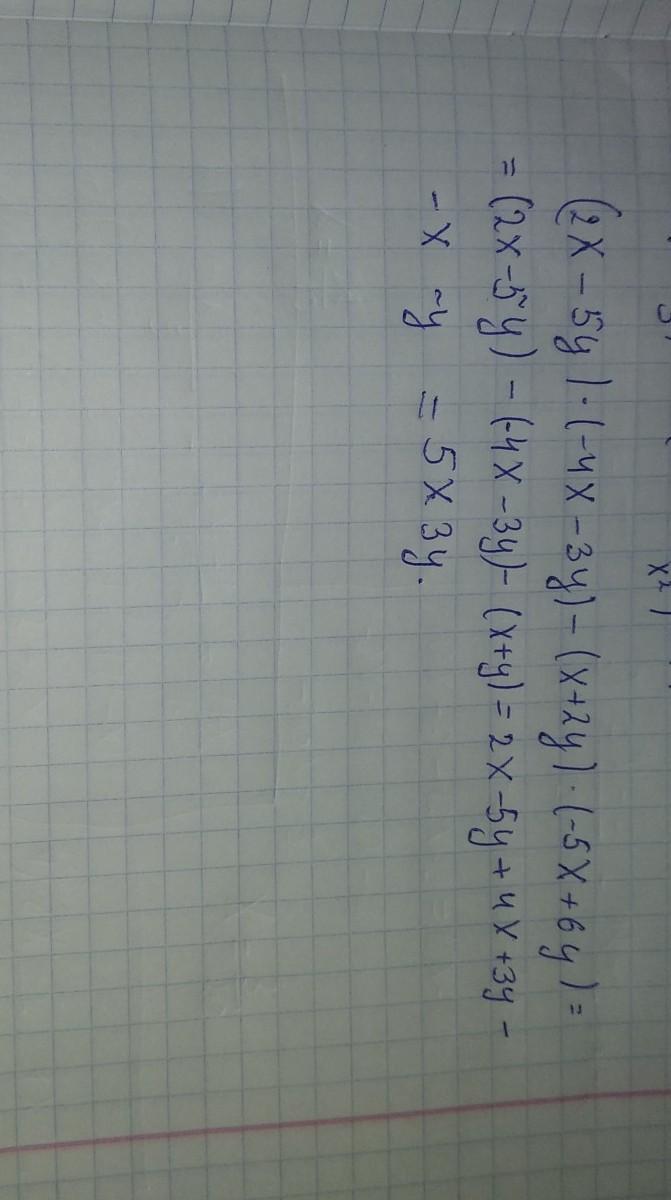 x²)
(2x - 5y) · (-4x - 3y) - (x + 2y) · (-5x + 6y) =
= (2x - 5y) - (-4x - 3y) - (x + y) = 2x - 5y + 4x + 3y -
- x - y = 5x3y.